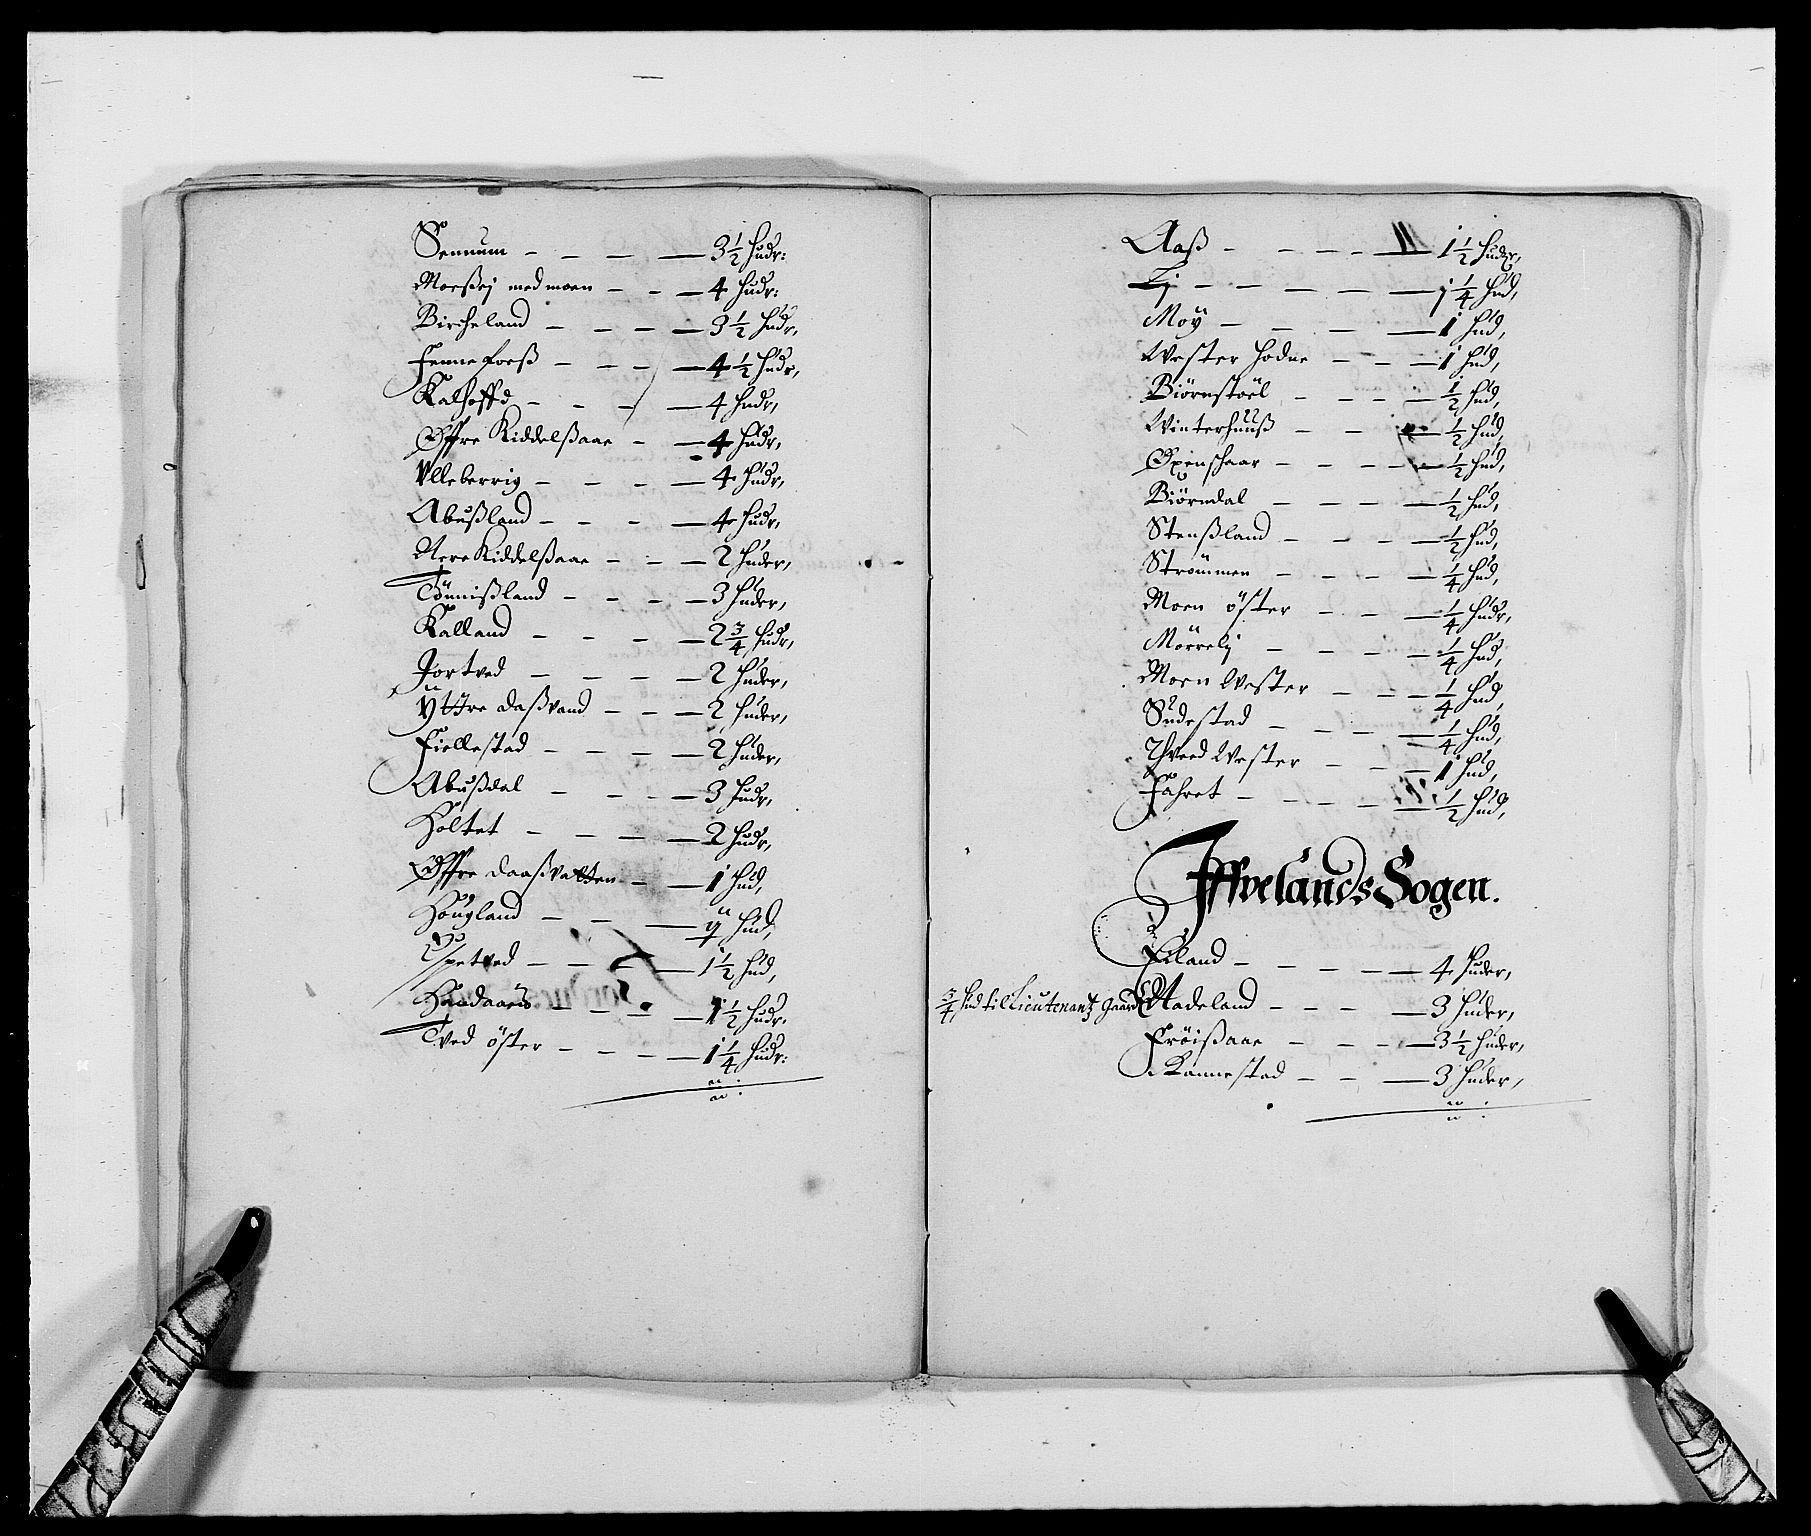 Sennum - - - - 3 1/2 hudr:
Moessej med moen - - - 4 hudr:
Bircheland - - - - 3 1/2 hudr,
Fennefoeß - - - 4 1/2 hudr,
Kalhoffd - - - - 4 hudr,
Øffre Kiddelßaae - - 4 hudr,
Ulleberrig - - - - 4 hudr,
Abußland - - - - 4 hudr,
Nere Kiddelßaae - - - 2 huder,
Tönnißland - - - - 3 huder,
Kalland - - - - 2 3/4 hudr,
Jortved - - - - 2 huder,
Ÿttre daßvand - - - 2 huder,
Fiellestad - - - - 2 huder,
Abußdal - - - - 3 hudr,
Holtet - - - - 2 hudr,
Øffre daaßvatten - - 1 hud,
Hougland - - - hud,
Uppetved - - - - 1 1/2 hud,
Handaaes - - - - 1 1/2 hudr,
Tved öster - - - - 1 1/4 hudr:
Aaß - - - - 1 1/2 hudr,
Lj - - - - - 1 1/4 hud,
Moÿ - - - - 1 hud,
Wester Hodne - - - 1 hud,
Biörnstöel - - - - 1/2 hud,
Winterhuuß - - - 1/2 hud,
Øxenschaar - - - - 1/2 hud,
Biörndal - - - - 1/2 hud,
Stenßland - - - - 1/2 hud,
Strömmen - - - - 1/4 hud,
Moen öster - - - 1/4 hudr,
Mörrelj - - - - 1/4 hud,
Moen Wester - - - 1/4 hud,
Sudestad - - - - 1/4 hud,
Thveed Wester - - - 1 hud,
Fahret - - - - 1/2 hud,
Iffvelands Sogen.
Eiland - - - - - 4 huder,
3/4 hud til Lieutenantz gaard Nadeland - - - - 3 huder,
Fröißaae - - - - 3 1/2 huder,
Kannestad - - - 3 huder,